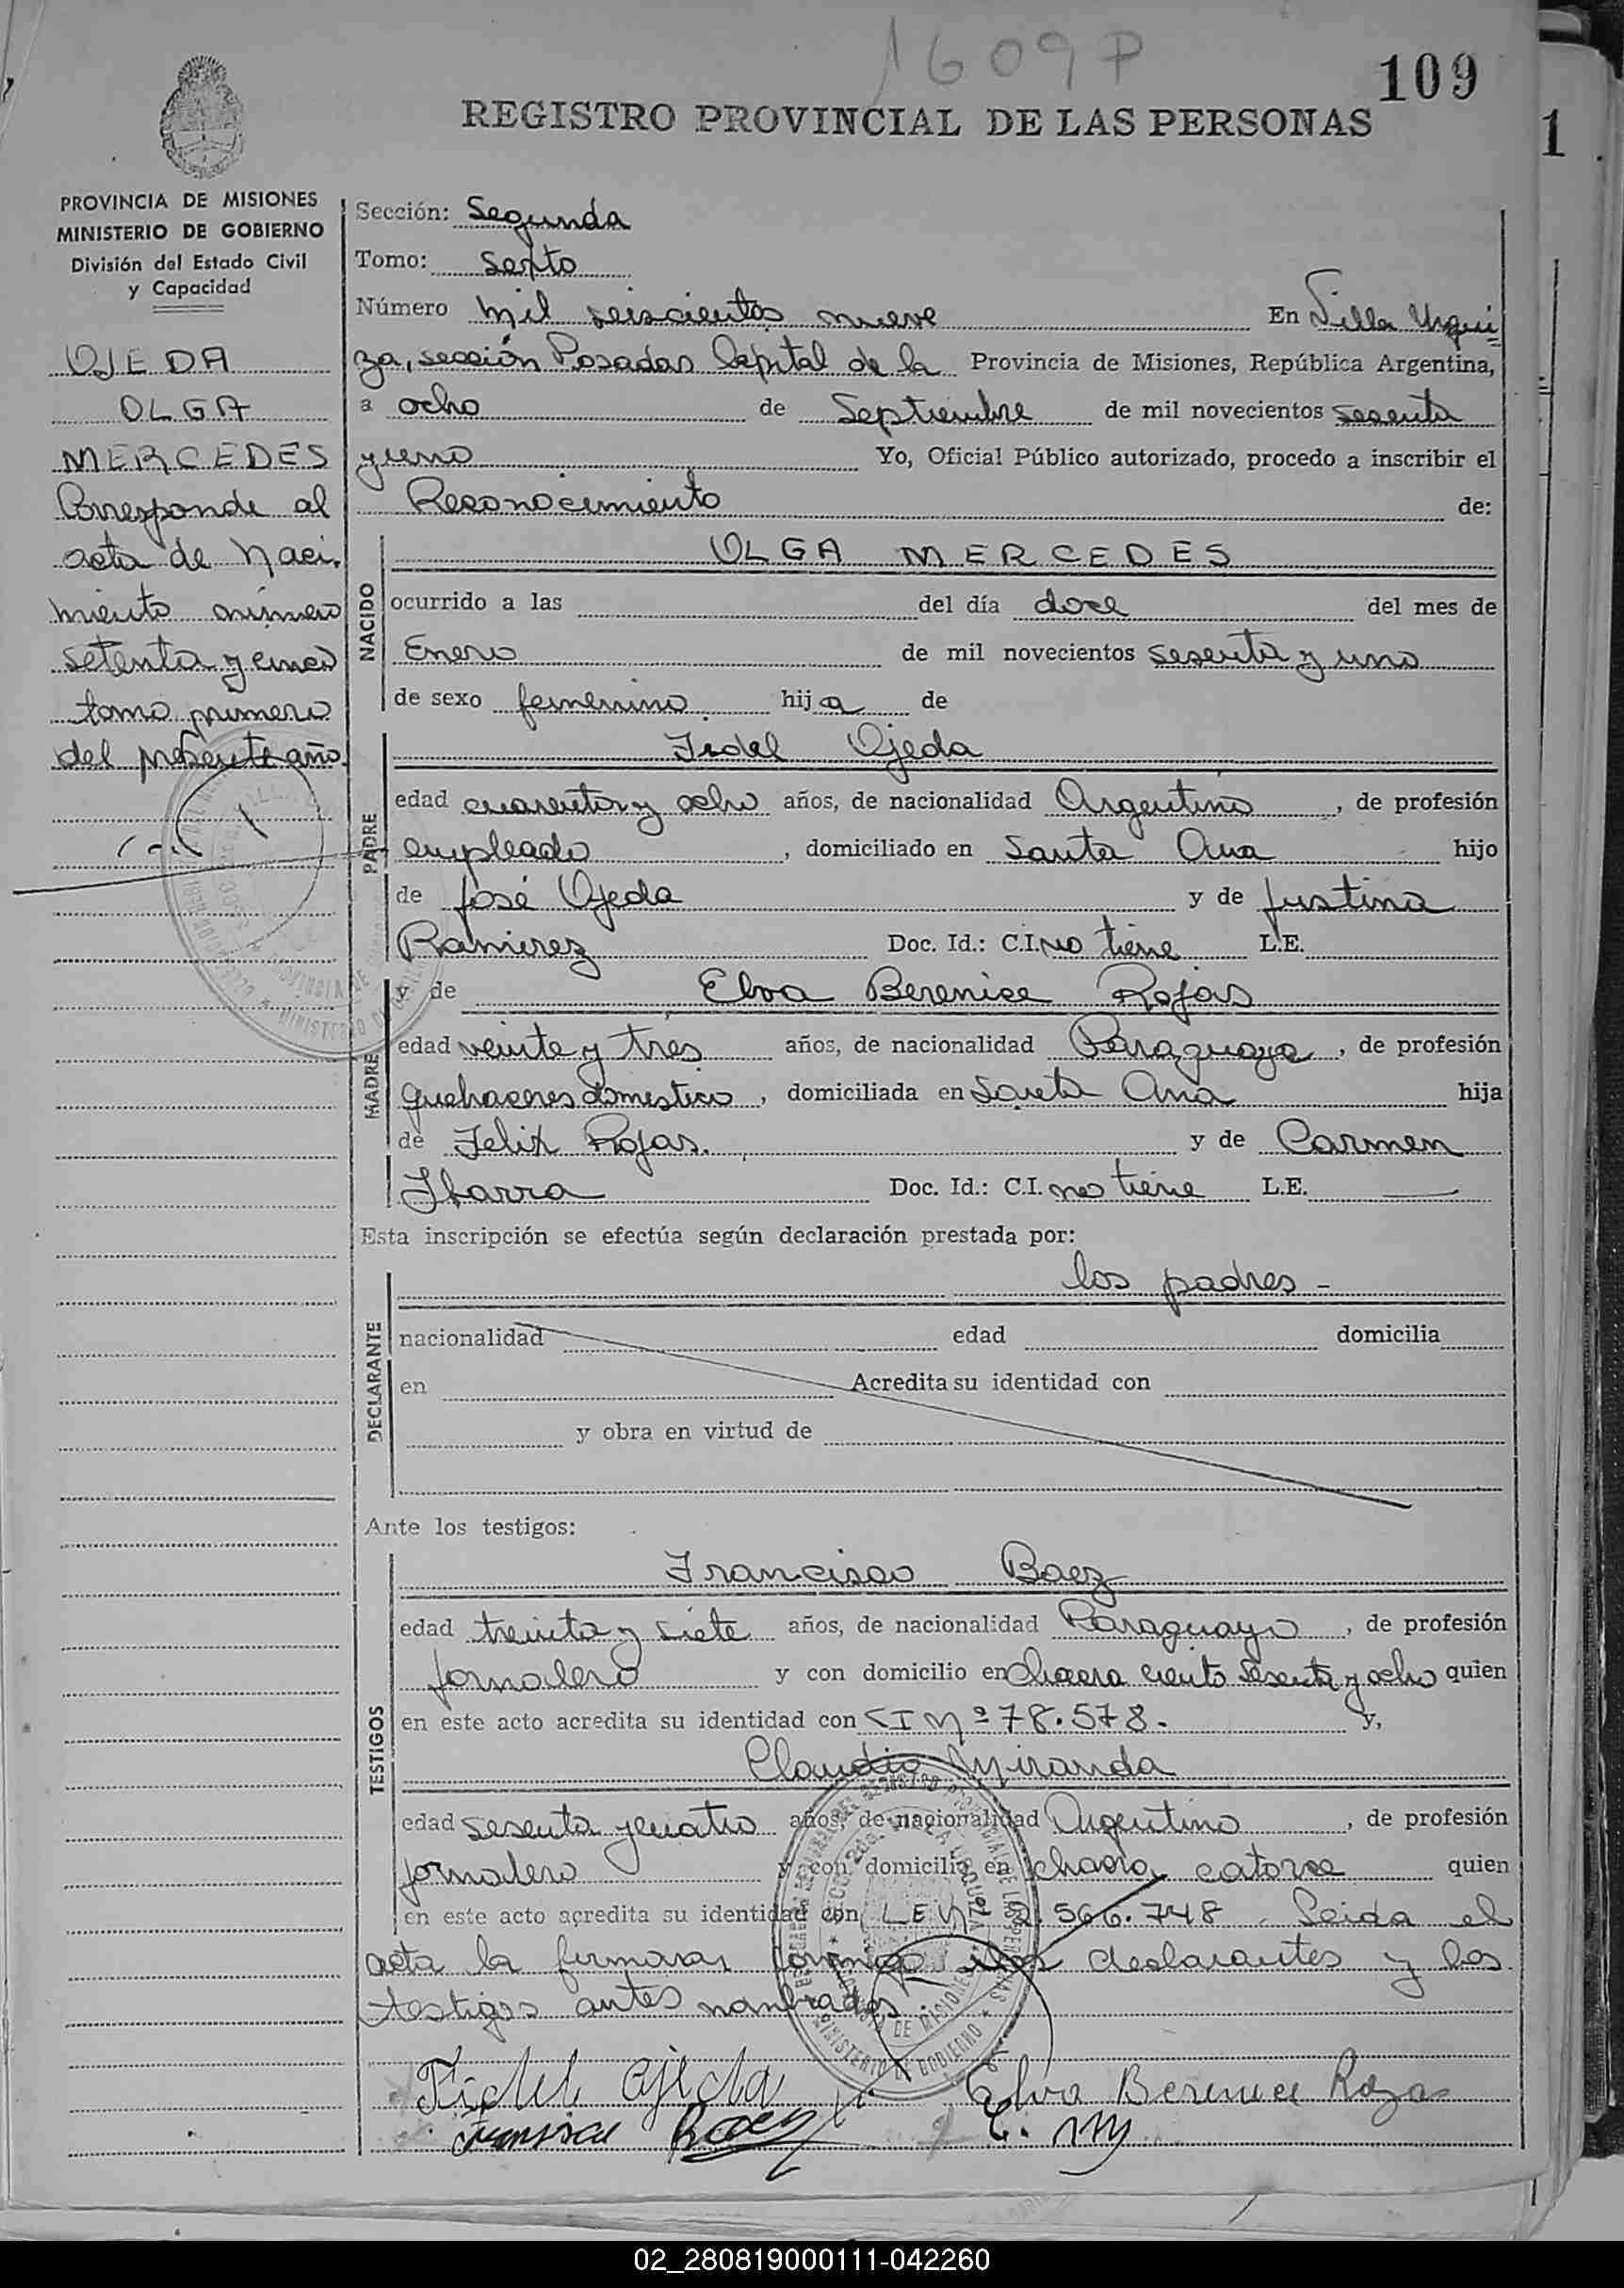 1609 P
109
REGISTRO PROVINCIAL DE LAS PERSONAS
1
PROVINCIA DE MISIONES
MINISTERIO DE GOBIERNO
División del Estado Civil
y Capacidad
OJEDA
OLGA
MERCEDES
Corresponde al
acta de Naci-
miento número
setenta y cinco
tomo primero
del presente año.
Sección: Segunda
Tomo: Sexto
Número mil seiscientos nueve En Villa Urqui
za, sección Posadas Capital de la Provincia de Misiones, República Argentina,
a ocho de Septiembre de mil novecientos sesenta
y uno Yo, Oficial Público autorizado, procedo a inscribir el
Reconocimiento de:
NACIDO
OLGA MERCEDES
ocurrido a las del día doce del mes de
Enero de mil novecientos sesenta y uno
de sexo femenino hija de
PADRE
Fidel Ojeda
edad cuarenta y ocho años, de nacionalidad Argentino, de profesión
empleado, domiciliado en Santa Ana hijo
de José Ojeda y de Justina
Ramirez Doc. Id.: C.I. no tiene L.E.
MADRE
y de Elva Berenice Rojas
edad veinte y tres años, de nacionalidad Paraguaya, de profesión
quehaceres domestico, domiciliada en Santa Ana hija
de Felix Rojas. y de Carmen
Ibarra Doc. Id.: C.I. no tiene L.E. —
Esta inscripción se efectúa según declaración prestada por:
los padres -
DECLARANTE
nacionalidad edad domicilia
en Acredita su identidad con
y obra en virtud de
Ante los testigos:
TESTIGOS
Francisco Baez
edad treinta y siete años, de nacionalidad Paraguayo, de profesión
jornalero y con domicilio en chacra ciento sesenta y ocho quien
en este acto acredita su identidad con CI Nº 78.578. y,
Claudio Miranda
edad sesenta y cuatro años, de nacionalidad Argentino, de profesión
jornalero y con domicilio en chacra catorce quien
en este acto acredita su identidad con LE Nº 2.566.748. Leida el
acta la firman conmigo los declarantes y los
testigos antes nombrados.
Fidel Ojeda Elva Berenice Rojas
Francisco Baez C. M
02_280819000111-042260